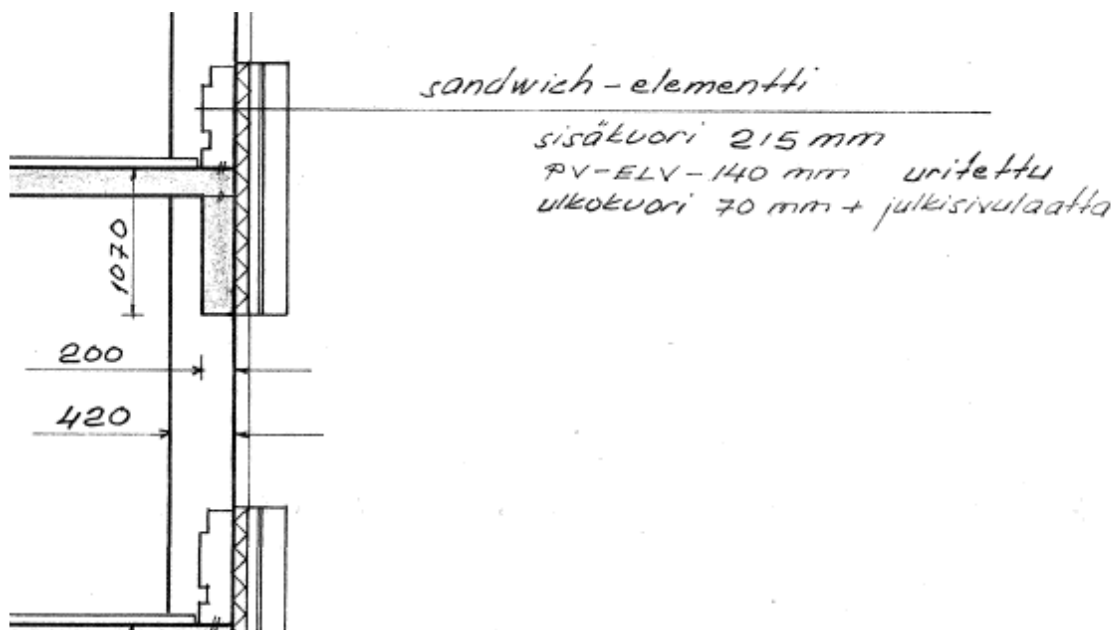 sandwich-elementti
sisäkuori 215 mm
PV-ELV-140 mm uritettu
ulkokuori 70 mm + julkisivulaatta
1070
200
420